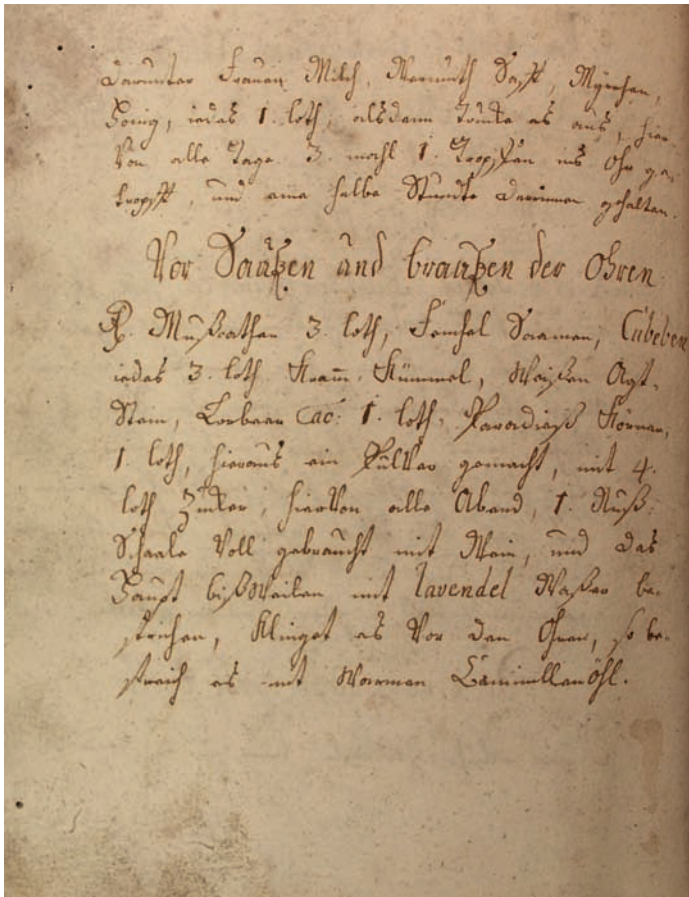 darunter Frauen Milch, Wermuth Safft, Myrrhen,
Honig, iedes 1. loth, alsdann drucke es aus, hier-
Von alle Tage 3. mahl 1. Tropffen ins Ohr ge-
tropfft, und eine halbe Stunde darinnen gehalten.
Vor Saußen und braußen der Ohren
Rx. Mußcathen 3. loth, Fenchel Saamen, Cubeben
iedes 3. loth Kram. Kümmel, Weißen Agt-
Stein, Lorbeern 1. loth. Paradieß Körner,
1. loth, hieraus ein Pulver gemacht, mit 4.
loth Zucker, hierVon alle Abend, 1. Nuß-
Schaale Voll gebraucht mit Wein, und das
Haupt bißWeilen mit lavendel Waßer be-
strichen, Klinget es Vor den Ohren, so be-
streich es mit Warmen Camillenöhl.